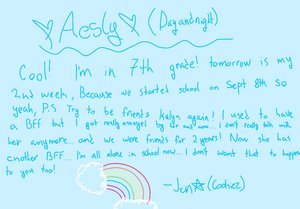 Aesly (Dayandnight)
Cool! I'm in 7th grade! tomorrow is my
2nd week, Because we started school on Sept 8th So
yeah, P.S Try to be friends Kalyn again! I used to have
a BFF but I got really annoyed by her and now... I don't really talk with
her anymore... and we were friends for 2 years! Now she has
another BFF... I'm all alone in school now... I don't want that to happen
to you too!
-Jen (Cookiez)